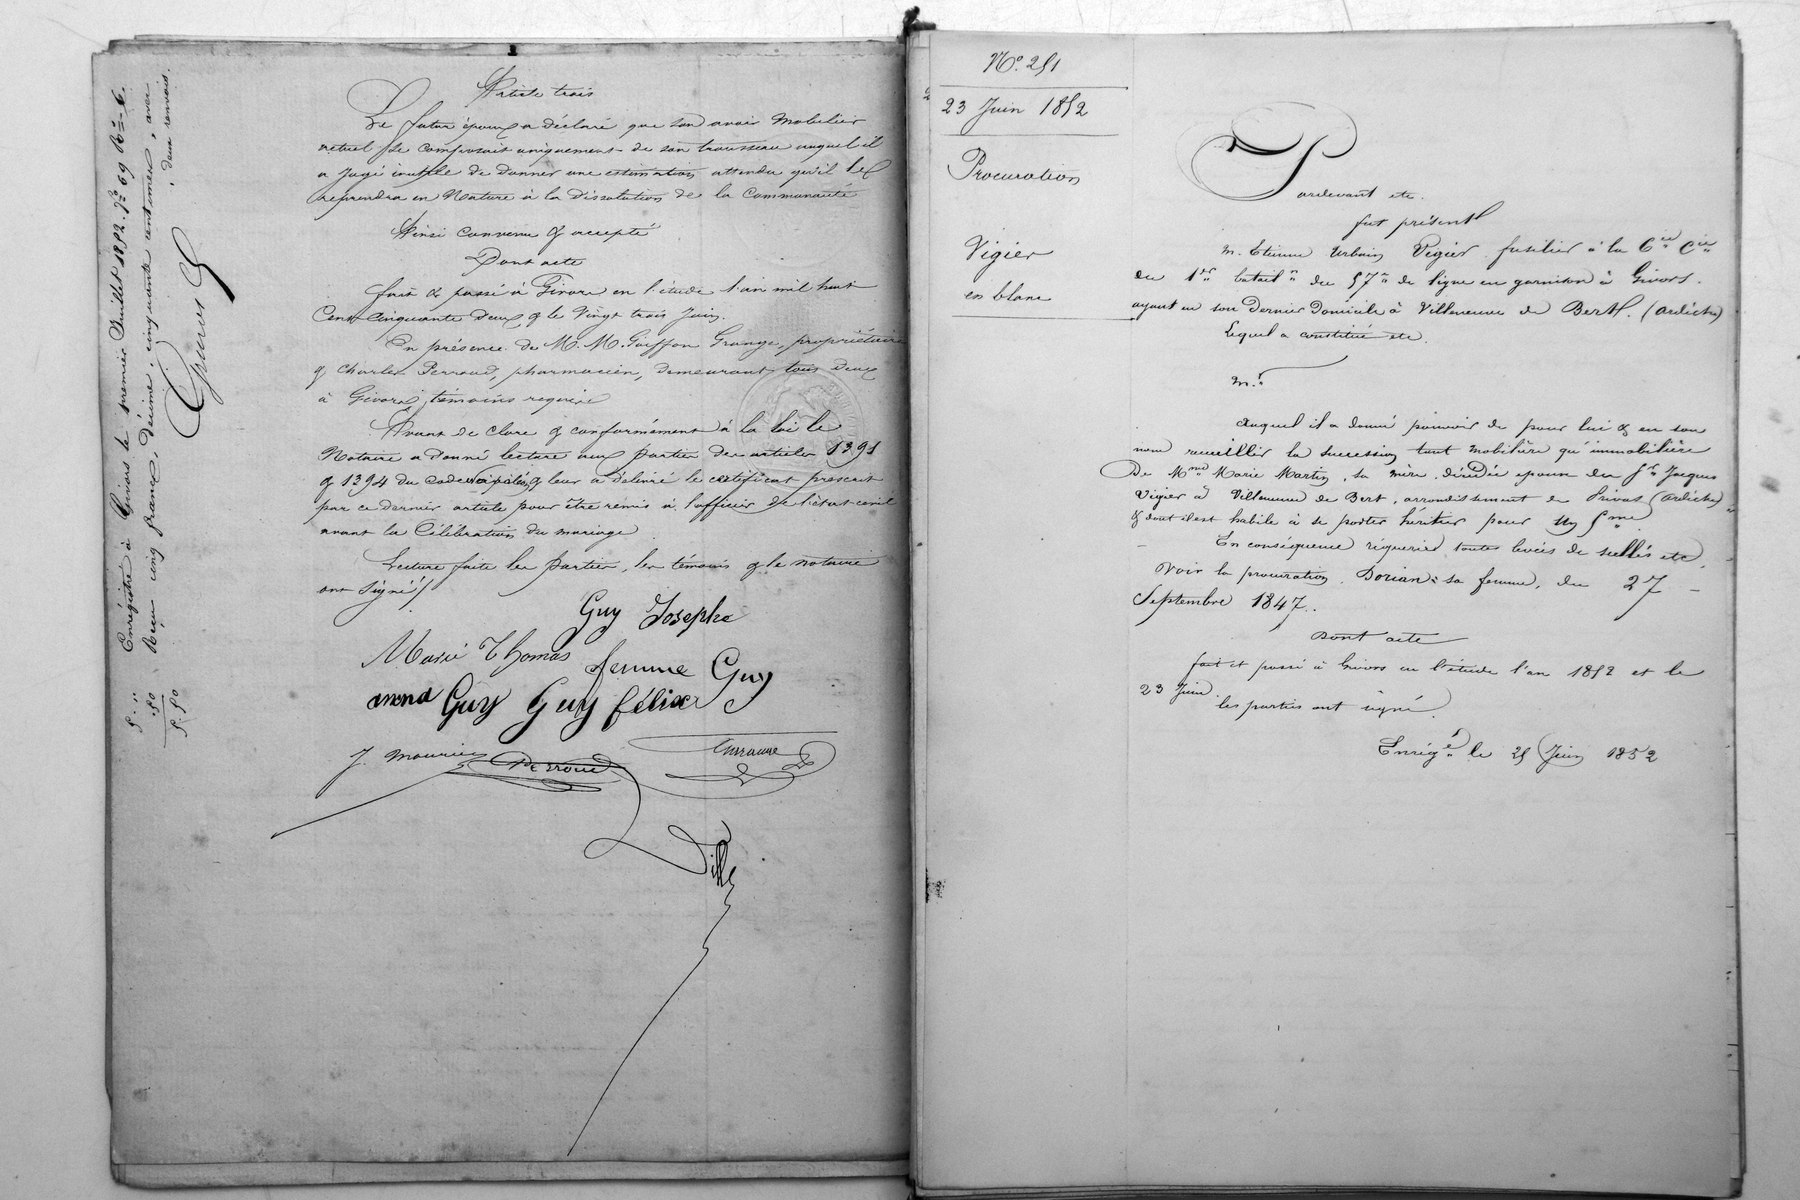 Article trois
Le futur époux a déclaré que son avoir Mobilier
actuel se composait uniquement de son trousseau auquel il
a jugé inutile de donner une estimation attendu qu'il le
reprendra en Nature à la Dissolution de la Communauté
Ainsi convenu & accepté
Dont acte
fait & passé à Givors en l'étude l'an mil huit
Cent cinquante deux & le Vingt trois Juin.
En présence de M.M. Goiffon Grange, propriétaire
& Charles Perroud, pharmacien, demeurant tous deux
à Givors, témoins requis
Avant de clore & conformément à la loi le
Notaire a donné lecture aux parties des articles 1391
& 1394 du code Napoléon & leur a délivré le certificat prescrit
par ce dernier article pour être remis à l'officier de l'état civil
avant la Célébration du mariage
Lecture faite les parties, les témoins & le notaire
ont signé /
Guy Josephe
Marie Thomas femme Guy
Guy Guy félix
J. Mounier Perroud
Ville
Enregistré à Givors le premier Juillet 1852. f° 69 R° c 6.
Reçu cinq francs, décime, cinquante centimes, avec
deux renvois.
5 . "
. 50
5. 50
N.° 251
23 Juin 1852
Procuration
Vigier
en blanc
Pardevant etc.
fut présent
M. Etienne Urbain Vigier fusilier à la 6.e Cie
du 1er batail.n du 57e de ligne en garnison à Givors.
ayant eu son dernier Domicile à Villeneuve de Bert. (ardèche)
Lequel a constitué etc.
M.r
auquel il a donné pouvoir de pour lui & en son
nom recueillir la succession tant mobilière qu'immobilière
De Mme Marie Martin, sa mère, décédée epouse du Sr Jacques
Vigier à Villeneuve de Bert, arrondissement de Privas (ardèche)
& dont il est habile à se porter héritier pour un 5me
En conséquence réquerir toutes levées de scellés etc.
Voir la procuration Dorian à sa femme, du 27
Septembre 1847.
Dont acte
fait et passé à Givors en l'étude l'an 1852 et le
23 Juin
les parties ont signé.
Enrég.é le 25 Juin 1852